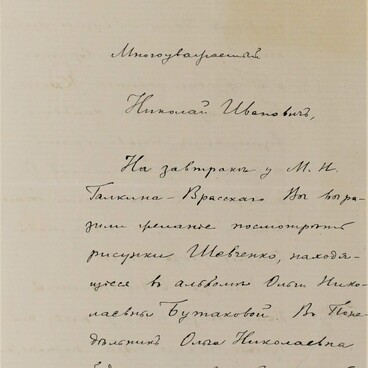 Многоуважаемый
Николай Ивановичъ,
На завтракѣ у М. Н.
Галкина-Врасскаго Вы выра-
зили желанiе посмотрѣть
рисунки Шевченко, находя-
щiеся въ альбомѣ Ольги Нико-
лаевны Бутаковой. Въ Поне-
дѣльникъ Ольга Николаевна